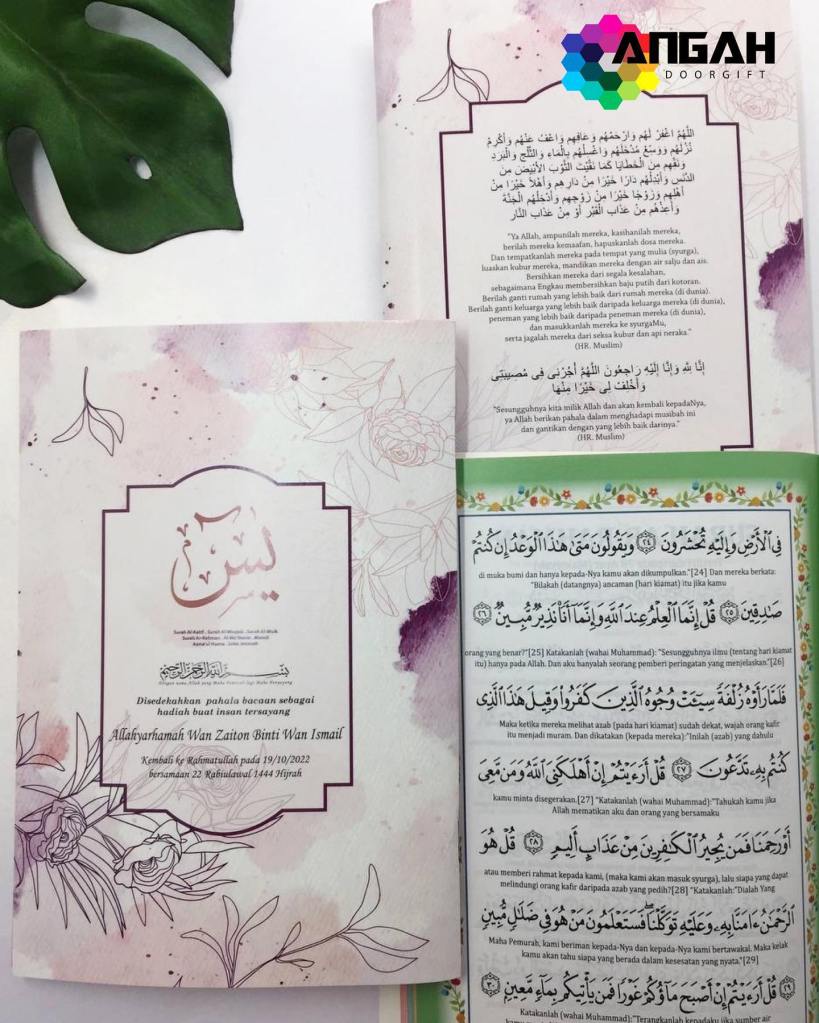 ANGAH
DOORGIFT
اللَّهُمَّ اغْفِرْ لَهُم وَارْحَمْهُم وَعَافِهِم وَاعْفُ عَنْهُم وَأَكْرِمْ
نُزُلَهُم وَوَسِّعْ مُدْخَلَهُم وَاغْسِلْهُم بِالْمَاءِ وَالثَّلْجِ وَالْبَرَدِ
وَنَقِّهِم مِنَ الْخَطَايَا كَمَا نَقَّيْتَ الثَّوْبَ الأَبْيَضَ مِنَ
الدَّنَسِ وَأَبْدِلْهُم دَارًا خَيْرًا مِنْ دَارِهِم وَأَهْلاً خَيْرًا مِنْ
أَهْلِهِم وَزَوْجًا خَيْرًا مِنْ زَوْجِهِم وَأَدْخِلْهُم الْجَنَّةَ
وَأَعِذْهُم مِنْ عَذَابِ الْقَبْرِ أَوْ مِنْ عَذَابِ النَّارِ
"Ya Allah, ampunilah mereka, kasihanilah mereka,
berilah mereka kemaafan, hapuskanlah dosa mereka.
Dan tempatkanlah mereka pada tempat yang mulia (syurga),
luaskan kubur mereka, mandikan mereka dengan air salju dan ais.
Bersihkan mereka dari segala kesalahan,
sebagaimana Engkau membersihkan baju putih dari kotoran.
Berilah ganti rumah yang lebih baik dari rumah mereka (di dunia).
Berilah ganti keluarga yang lebih baik daripada keluarga mereka (di dunia),
peneman yang lebih baik daripada peneman mereka (di dunia),
dan masukkanlah mereka ke syurgaMu,
serta jagalah mereka dari seksa kubur dan api neraka."
(HR. Muslim)
إِنَّا لِلَّهِ وَإِنَّا إِلَيْهِ رَاجِعُونَ اللَّهُمَّ أْجُرْنِى فِى مُصِيبَتِى
وَأَخْلِفْ لِى خَيْرًا مِنْهَا
"Sesungguhnya kita milik Allah dan akan kembali kepadaNya,
ya Allah berikan pahala dalam menghadapi musibah ini
dan gantikan dengan yang lebih baik darinya."
(HR. Muslim)
يس
Surah Al-Kahfi . Surah Al-Waqiah . Surah Al-Mulk
بِسْمِ اللَّهِ الرَّحْمَنِ الرَّحِيمِ
Dengan nama Allah yang Maha Pemurah lagi Maha Penyayang
Disedekahkan pahala bacaan sebagai
hadiah buat insan tersayang
Allahyarhamah Wan Zaiton Binti Wan Ismail
Kembali ke Rahmatullah pada 19/10/2022
bersamaan 22 Rabiulawal 1444 Hijrah
فِي الْأَرْضِ وَإِلَيْهِ تُحْشَرُونَ ٢٤ وَيَقُولُونَ مَتَىٰ هَٰذَا الْوَعْدُ إِن كُنتُمْ
di muka bumi dan hanya kepada-Nya kamu akan dikumpulkan."[24] Dan mereka berkata:
"Bilakah (datangnya) ancaman (hari kiamat) itu jika kamu
صَٰدِقِينَ ٢٥ قُلْ إِنَّمَا الْعِلْمُ عِندَ اللَّهِ وَإِنَّمَا أَنَا نَذِيرٌ مُّبِينٌ ٢٦
orang yang benar?"[25] Katakanlah (wahai Muhammad): "Sesungguhnya ilmu (tentang hari kiamat
itu) hanya pada Allah. Dan aku hanyalah seorang pemberi peringatan yang menjelaskan."[26]
فَلَمَّا رَأَوْهُ زُلْفَةً سِيئَتْ وُجُوهُ الَّذِينَ كَفَرُوا وَقِيلَ هَٰذَا الَّذِي
Maka ketika mereka melihat azab (pada hari kiamat) sudah dekat, wajah orang kafir
itu menjadi muram. Dan dikatakan (kepada mereka):"Inilah (azab) yang dahulu
كُنتُم بِهِ تَدَّعُونَ ٢٧ قُلْ أَرَءَيْتُمْ إِنْ أَهْلَكَنِيَ اللَّهُ وَمَن مَّعِيَ
kamu minta disegerakan.[27] "Katakanlah (wahai Muhammad):"Tahukah kamu jika
Allah mematikan aku dan orang yang bersamaku
أَوْ رَحِمَنَا فَمَن يُجِيرُ الْكَٰفِرِينَ مِنْ عَذَابٍ أَلِيمٍ ٢٨ قُلْ هُوَ
atau memberi rahmat kepada kami, (maka kami akan masuk syurga), lalu siapa yang dapat
melindungi orang kafir daripada azab yang pedih?[28] "Katakanlah:"Dialah Yang
الرَّحْمَٰنُ ءَامَنَّا بِهِ وَعَلَيْهِ تَوَكَّلْنَا فَسَتَعْلَمُونَ مَنْ هُوَ فِي ضَلَٰلٍ مُّبِينٍ
Maha Pemurah, kami beriman kepada-Nya dan kepada-Nya kami bertawakal. Maka kelak
kamu akan tahu siapa yang berada dalam kesesatan yang nyata."[29]
٢٩ قُلْ أَرَءَيْتُمْ إِنْ أَصْبَحَ مَاؤُكُمْ غَوْرًا فَمَن يَأْتِيكُم بِمَاءٍ مَّعِينٍ ٣٠
Katakanlah (wahai Muhammad):"Terangkanlah kepadaku jika sumber air